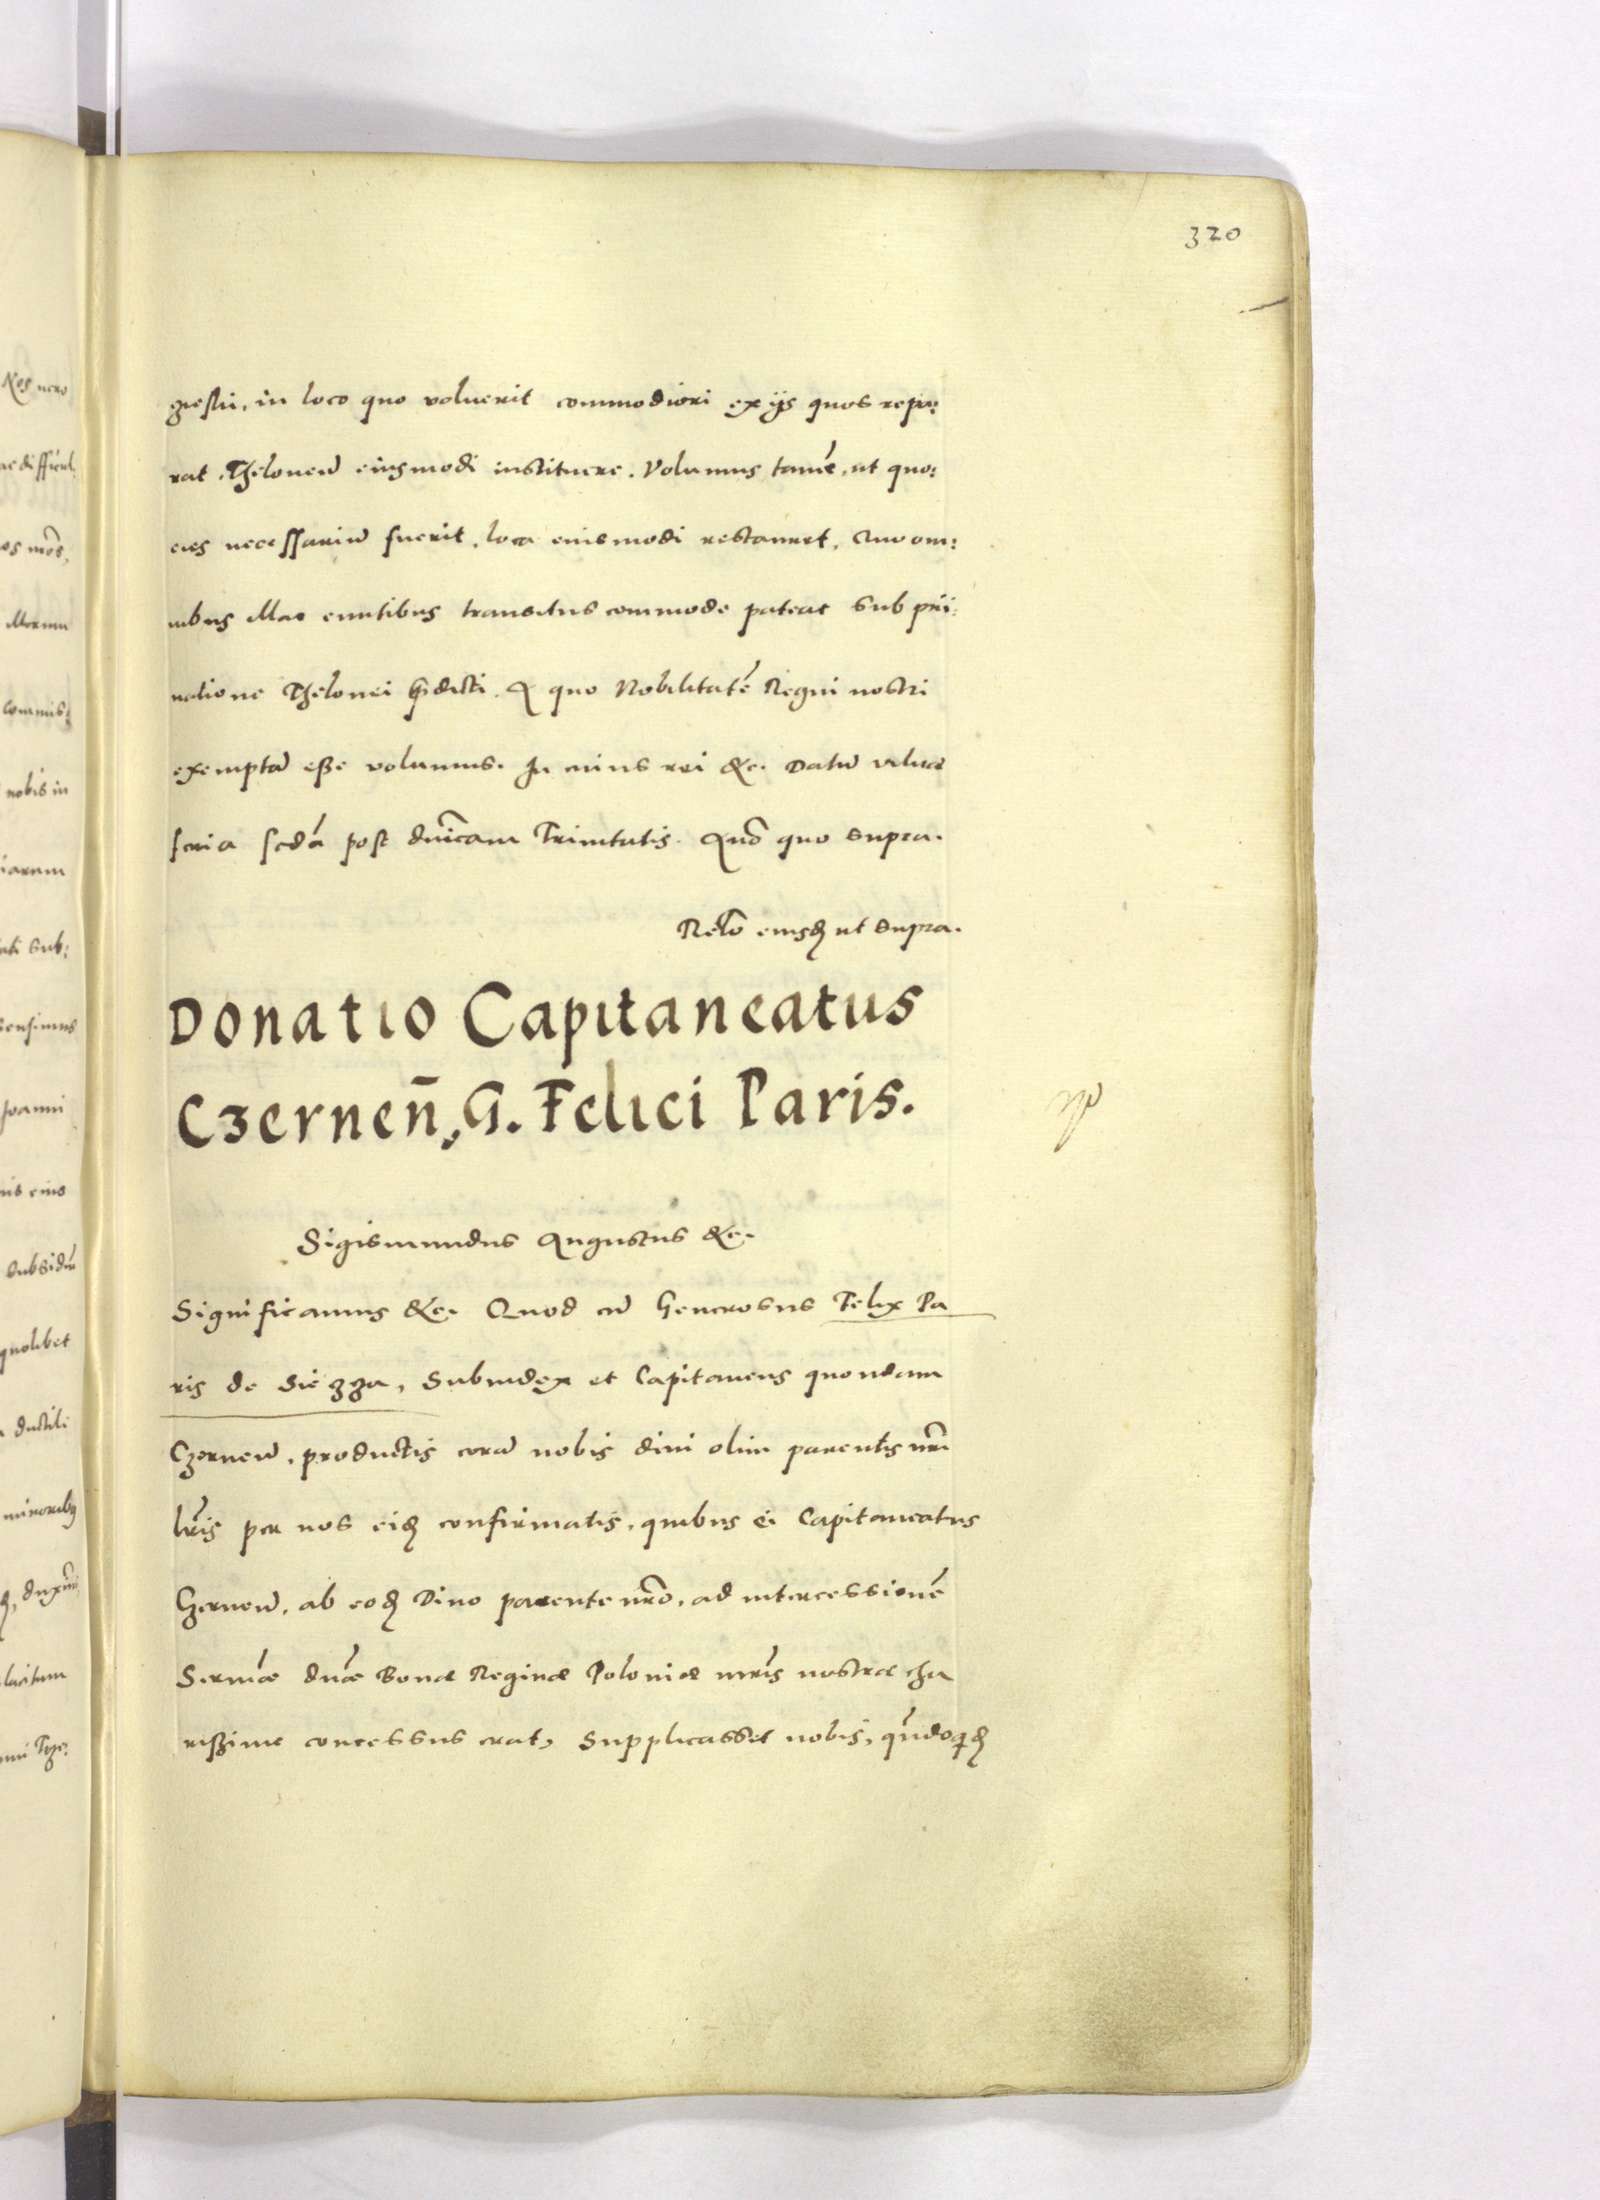 320
giestii, in loco quo voluerit commodiori ex ijs quos repa:
rat, Theloneū eiusmodi instituere. Volumus tamē, ut quo:
cies necessariū fuerit, loca eiusmodi restauret, Quo om:
nibus illac euntibus transitus commode pateat sub pri:
uatione Thelonei p̄dicti. A quo Nobilitatē Regni nostri
exemptā esse volumus. In cuius rei &c. Datū Vilnae
feria scdā post dnīcam Trinitatis. Anō quo supra.
Relō eiusdē ut supra.
Donatio Capitaneatus
Czernen̄, G. Felici Paris.
Sigismundus Augustus &c.
Significamus &c. Quod cū Generosus Felix Pa
ris de Siezza, Subiudex et Capitaneus quondam
Czerneñ, productis corā nobis diui olim parentis nrī
lrīs per nos eidē confirmatis, quibus ei Capitaneatus
Czerneñ, ab eodē Diuo parente nrō, ad intercessionē
Sermāe dnāe Bonae Reginae Poloniae mrīs nostrae cha
rissime concessus erat, supplicasset nobis, qūdoqdē